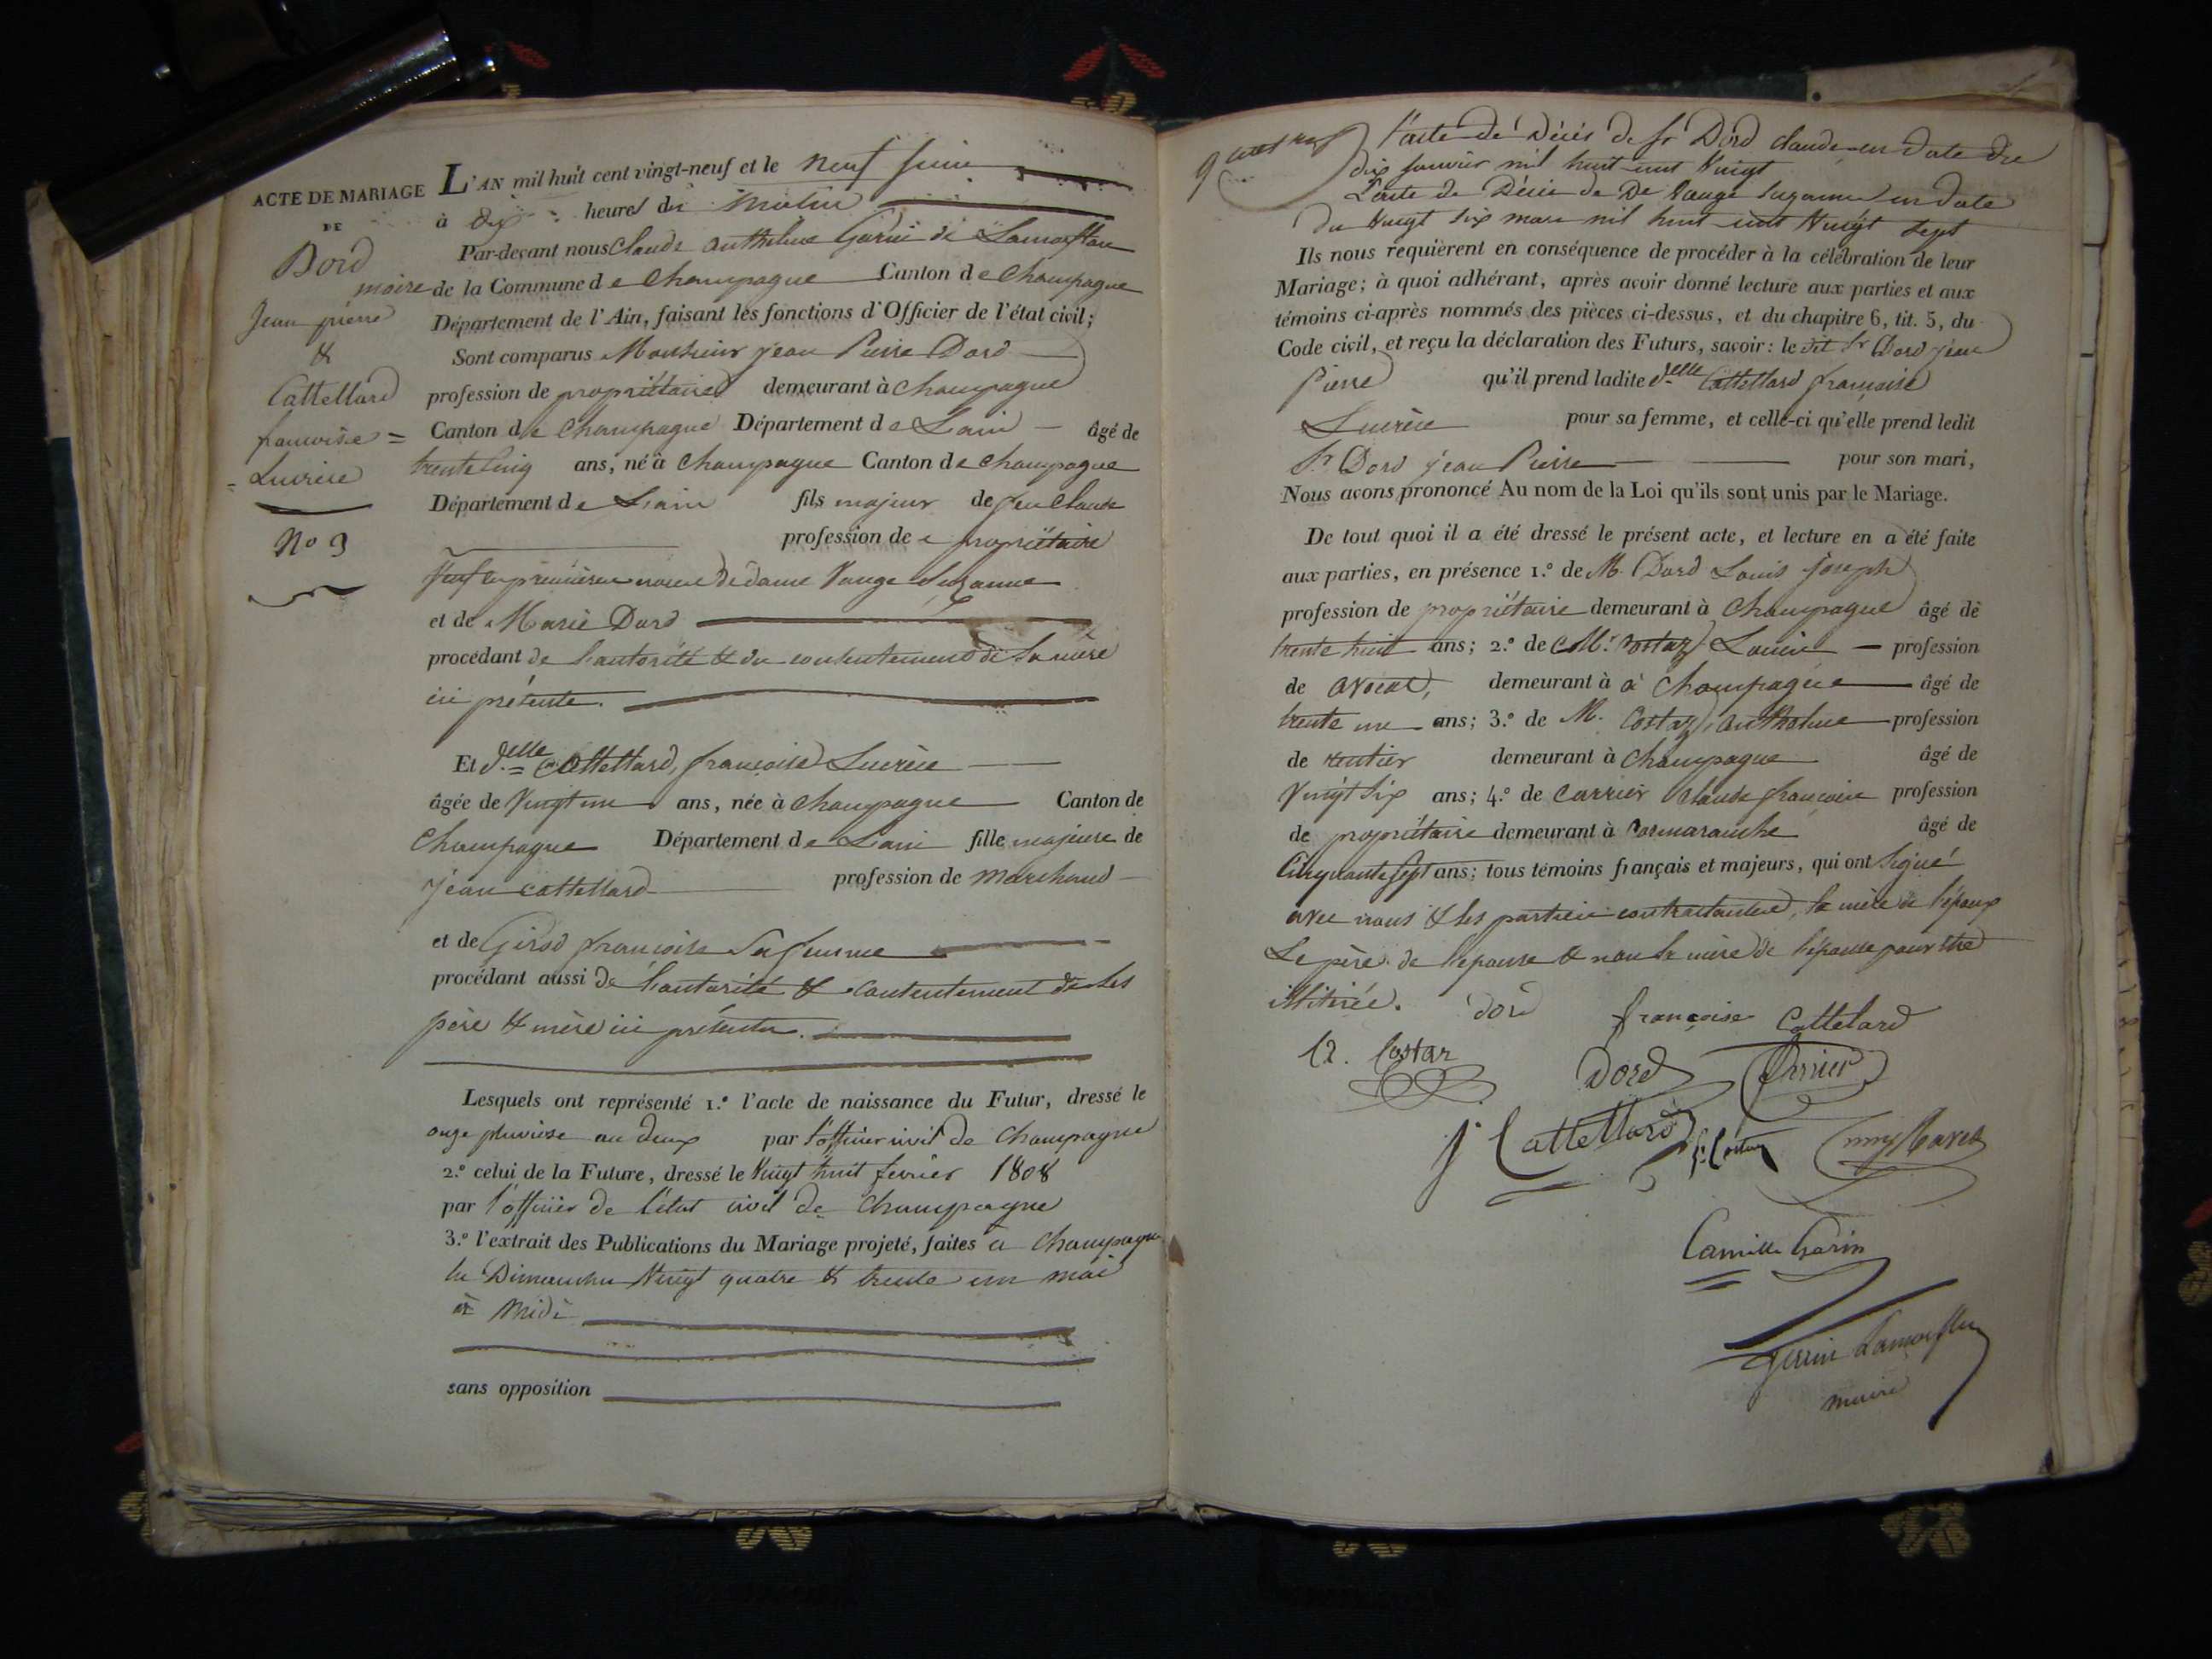 ACTE DE MARIAGE
DE
Dord
Jean pierre
&
Cattellard
francoise =
= Lucrèce
No 9
L'AN mil huit cent vingt-neuf et le neuf Juin
à dix heures du matin
Par-devant nous Claude Anthelme Garin de Lamorflan
maire de la Commune de Champagne Canton de Champagne
Département de l'Ain, faisant les fonctions d'Officier de l'état civil;
Sont comparus Monsieur jean Pierre Dord
profession de propriétaire demeurant à Champagne
Canton de Champagne Département de Lain âgé de
trente Cinq ans, né à Champagne Canton de Champagne
Département de Lain fils majeur de feu Claude
profession de propriétaire
Veuf en premières noces de dame Vauge Suzanne
et de Marie Dord
procédant de l'autorité & du consentement de Sa mère
ici présente.
Et delle Cattellard, françoise Lucrèce
âgée de Vingt un ans, née à Champagne Canton de
Champagne Département de Lain fille majeure de
Jean Cattellard profession de marchand
et de Girod françoise Sa femme
procédant aussi de l'autorité & consentement de Ses
père & mère ici présents.
Lesquels ont représenté 1.º l'acte de naissance du Futur, dressé le
onze pluviose an deux par l'officier civil de Champagne
2.º celui de la Future, dressé le Vingt huit fevrier 1808
par l'officier de l'état civil de Champagne
3.º l'extrait des Publications du Mariage projeté, faites à Champagne
les Dimanches Vingt quatre & trente un mai
à Midi
sans opposition
L'acte de Décès de Sr Dord Claude en date du
dix janvier mil huit cent Vingt
L'acte de Décès de De Vauge Suzanne en date
du Vingt Six mars mil huit cent Vingt Sept
Ils nous requièrent en conséquence de procéder à la célébration de leur
Mariage; à quoi adhérant, après avoir donné lecture aux parties et aux
témoins ci-après nommés des pièces ci-dessus, et du chapitre 6, tit. 5, du
Code civil, et reçu la déclaration des Futurs, savoir: le dit Sr Dord jean
Pierre qu'il prend ladite delle Cattellard françoise
Lucrèce pour sa femme, et celle-ci qu'elle prend ledit
Sr Dord jean Pierre pour son mari,
Nous avons prononcé Au nom de la Loi qu'ils sont unis par le Mariage.
De tout quoi il a été dressé le présent acte, et lecture en a été faite
aux parties, en présence 1.º de M. Dord Louis Joseph
profession de propriétaire demeurant à Champagne âgé de
trente huit ans; 2.º de Mr Costaz Louis profession
de avocat, demeurant à à Champagne âgé de
trente un ans; 3.º de M. Costaz, anthelme profession
de rentier demeurant à Champagne âgé de
Vingt Six ans; 4.º de Carrier Claude francois profession
de propriétaire demeurant à Cormaranche âgé de
Cinquante Sept ans; tous témoins français et majeurs, qui ont Signé
avec nous & les parties contractantes, la mère de l'époux
Le père de l'épouse & non la mère de l'épouse pour être
illitirée. Dord françoise Cattelard
Costaz Dord
J Cattellard
Camille Garin
garin Lamorflan
maire